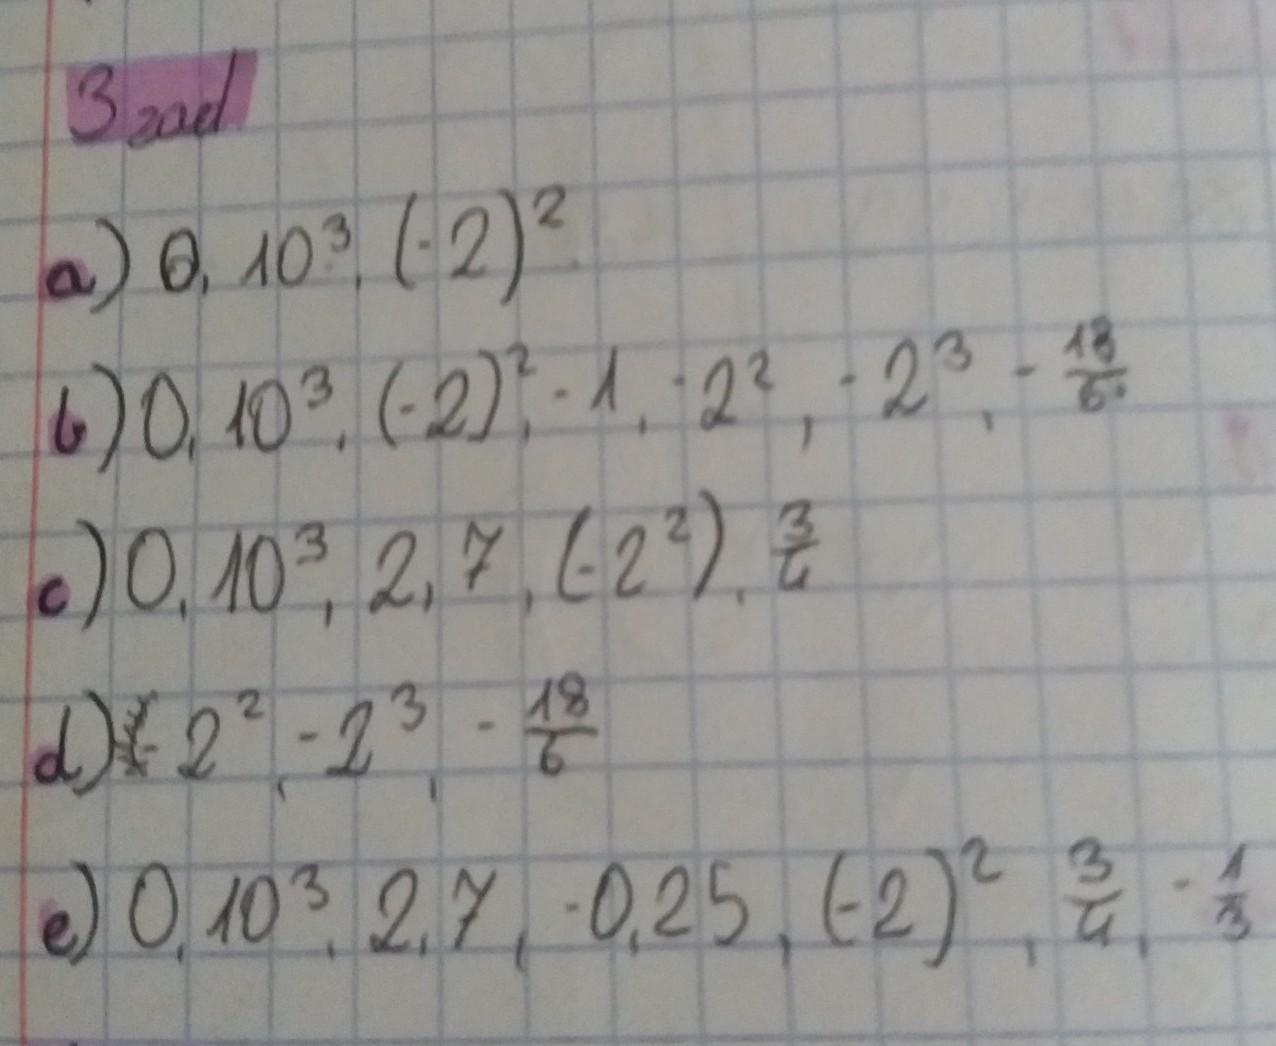 3 zad
a) 0, 10³, (-2)²
b) 0, 10³, (-2)², -1, -2², -2³, -18/6
c) 0, 10³, 2,7, (-2²), 3/4
d) -2², -2³, -18/6
e) 0, 10³, 2,7, -0,25, (-2)², 3/4, -1/3